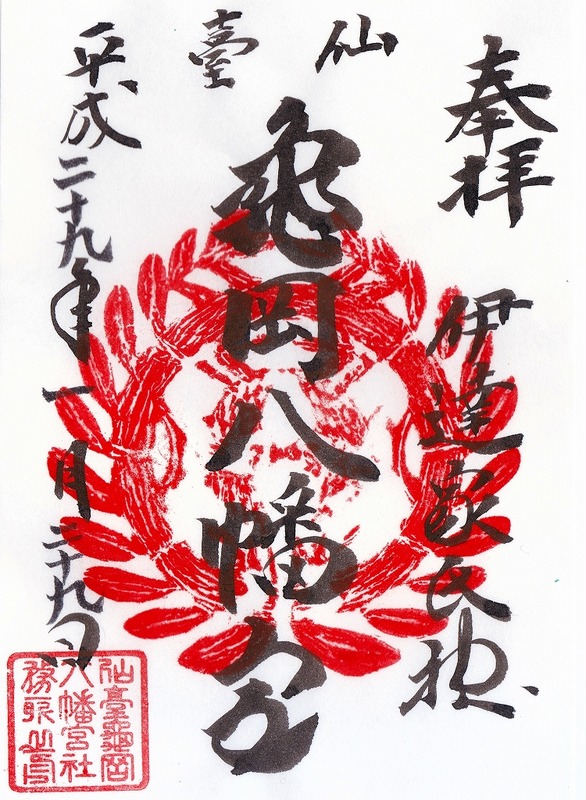 奉拝
伊達家氏神
仙臺
亀岡八幡宮
平成二十九年一月二十九日
仙臺龜岡
八幡宮社
務所之印